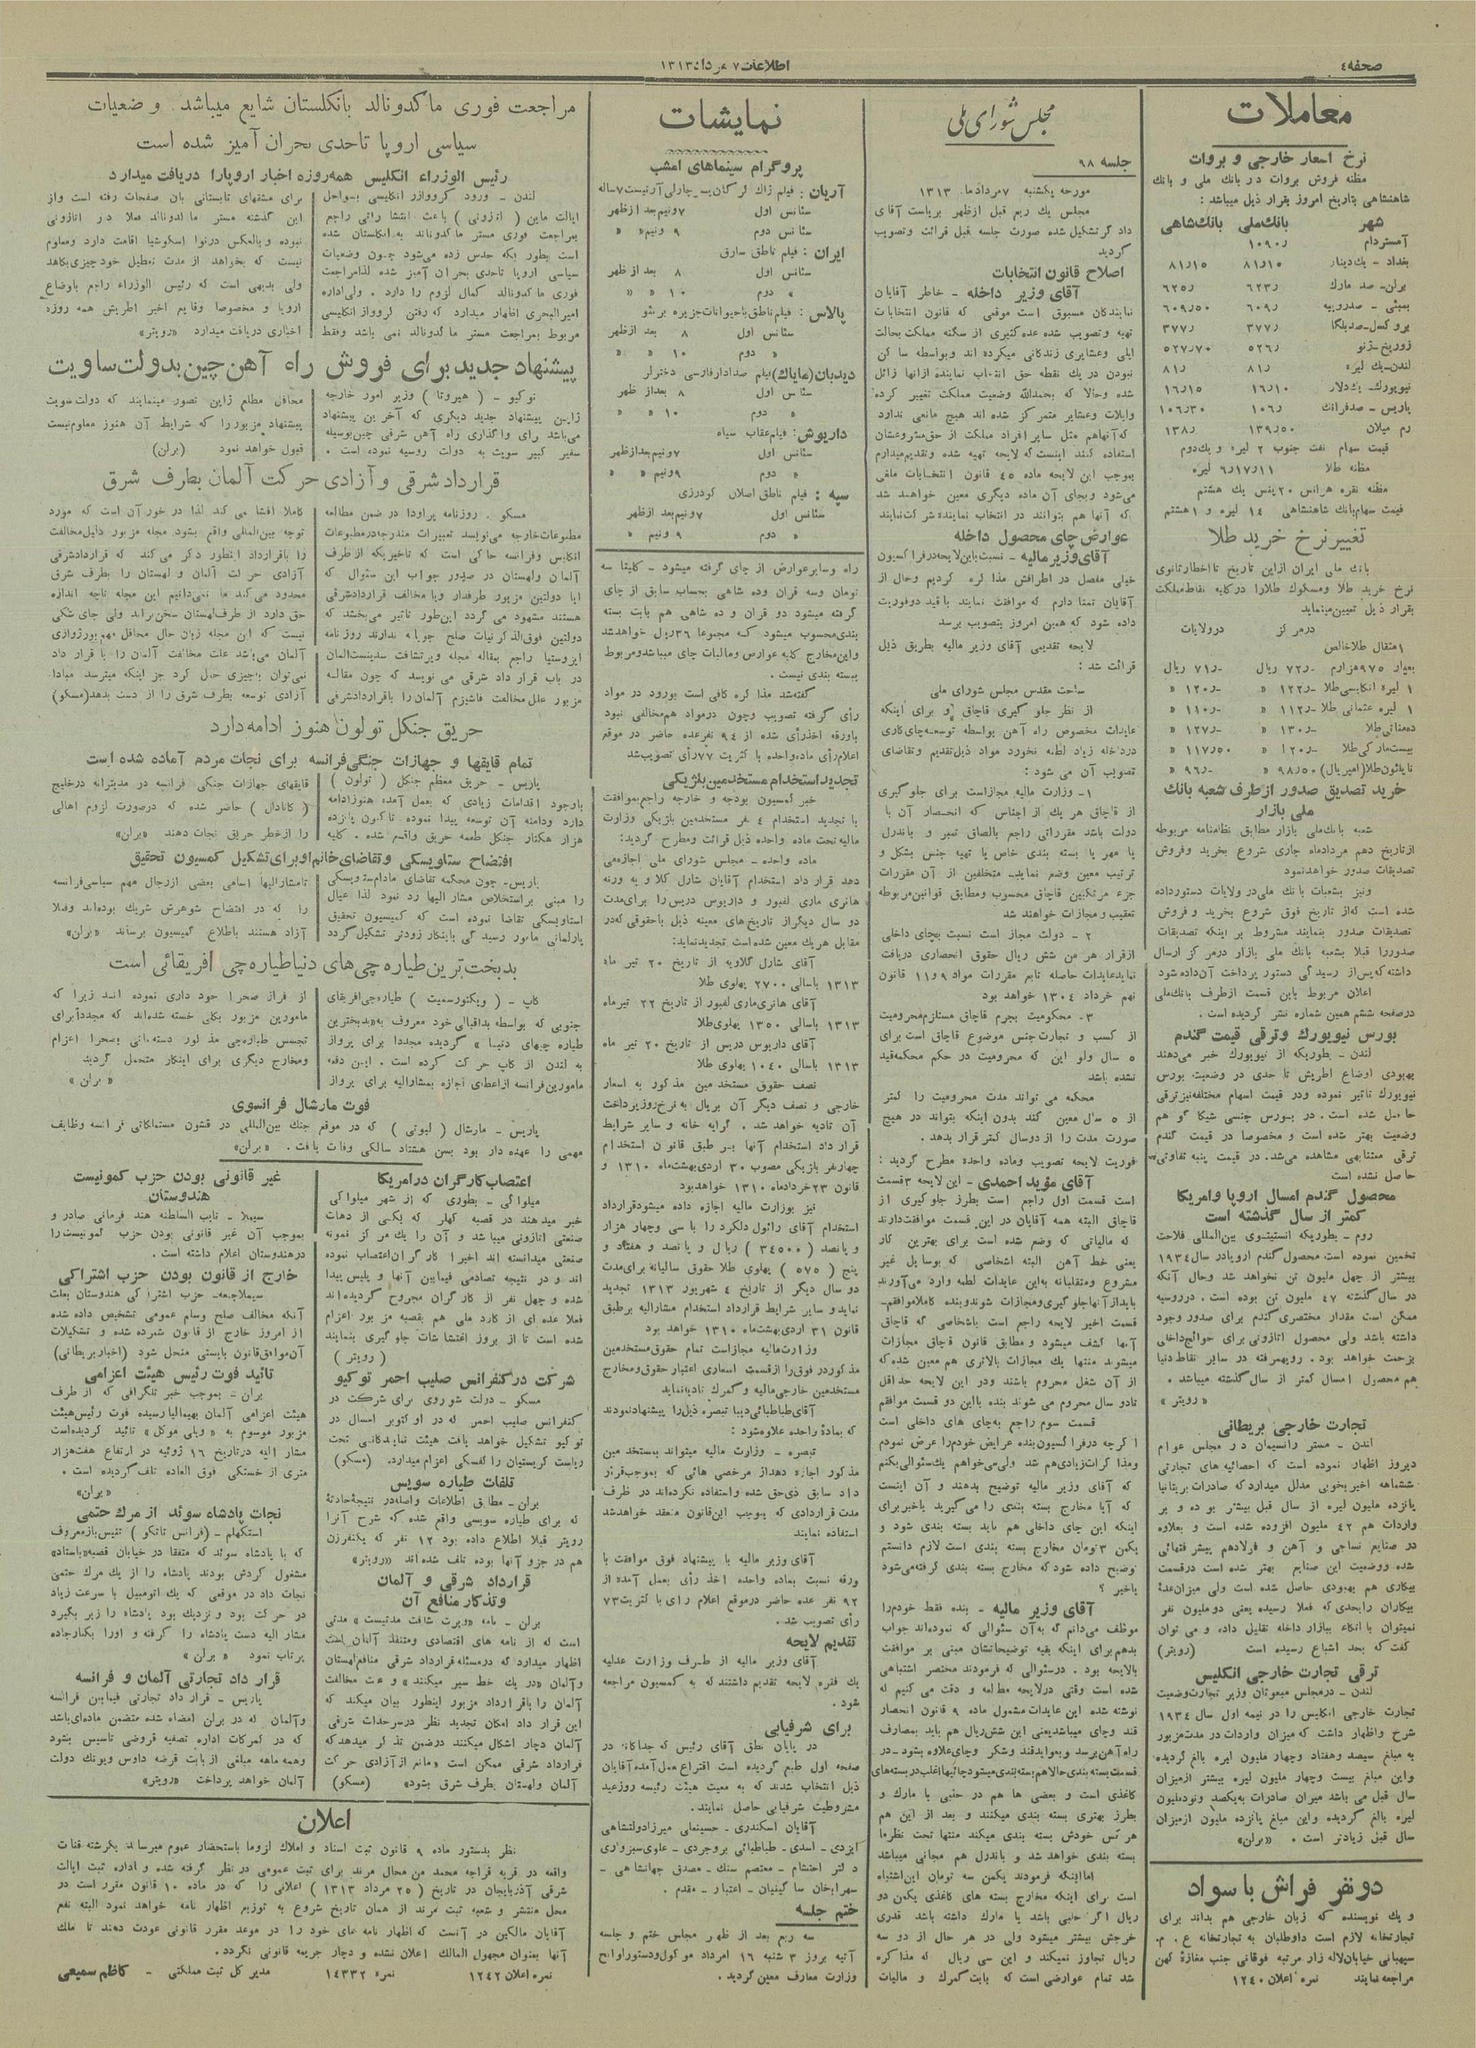 صفحه ٤
اطلاعات ۷ مرداد ۱۳۱۳
معاملات
نرخ اسعار خارجی و بروات
مظنه فروش بروات در بانك ملی و بانك
شاهنشاهی بتاریخ امروز بقرار ذیل میباشد :
شهر بانك‌ملی بانك‌شاهی
آمستردام ۱۰۹۰ر
بغداد – يك دينار ۸۱ر۱۰ ۸۱ر۱۵
برلن – صد مارك ۶۲۳ر ۶۲۵ر
بمبئی – صدروپیه ۶۰۹ر ۶۰۹ر۵۰
بروکسل – صدبلگا ۳۷۷ر ۳۷۷ر
زوریخ – ژنو ۵۲۶ر ۵۲۷ر۷۰
لندن – يك لیره ۸۱ر ۸۱ر
نیویورك – يك دلار ۱۶ر۱۰ ۱۶ر۱۵
پاریس – صدفرانك ۱۰۶ر ۱۰۶ر۳۰
رم میلان ۱۳۹ر۵۰ ۱۳۸ر
قیمت سهام نفت جنوب ۲ لیره و يك‌دوم
مظنه طلا ۶ر۱۷ر۱۱ لیره
مظنه نقره هرانس ۲۰ پنس يك هشتم
قیمت سهام بانك شاهنشاهی ۱۴ لیره و ۱ هشتم
تغییر نرخ خرید طلا
بانك ملی ایران ازاین تاریخ تا اخطار ثانوی
نرخ خرید طلا ومسکوك طلارا درکلیه نقاط مملکت
بقرار ذیل تعیین مینماید
درمرکز درولایات
۱ مثقال طلا خالص
بعیار ۹۷۵ هزارم ۷۲ر ریال ۷۱ر ریال
۱ لیره انگلیسی طلا ۱۲۲ر « ۱۲۰ر «
۱ لیره عثمانی طلا ۱۱۲ر « ۱۱۰ر «
دهمناتی طلا ۱۳۰ر « ۱۲۷ر «
بیست مارکی طلا ۱۲۰ر « ۱۱۷ر۵۰ «
ناپلئون طلا (امپریال) ۹۸ر۵۰ « ۹۶ر «
خرید تصدیق صدور از طرف شعبه بانك
ملی بازار
شعبه بانك ملی بازار مطابق نظامنامه مربوطه
ازتاریخ دهم مردادماه جاری شروع بخرید وفروش
تصدیقات صدور خواهد نمود
ونیز بشعبات بانك ملی در ولایات دستور داده
شده است که از تاریخ فوق شروع بخرید و فروش
تصدیقات صدور بنمایند مشروط بر اینکه تصدیقات
صدور را قبلا بشعبه بانك ملی بازار درمرکز ارسال
داشته که پس از رسیدگی دستور پرداخت آن داده شود
اعلان مربوط باین قسمت ازطرف بانك ملی
درصفحه ششم همین شماره نشر گردیده است .
بورس نیویورك وترقی قیمت گندم
لندن – بطوریکه از نیویورك خبر می‌دهند
بهبودی اوضاع اطریش تا حدی در وضعیت بورس
نیویورك تاثیر نموده ودر قیمت اسهام مختلفه نیز ترقی
حاصل شده است. در بورس جنسی شیکاگو هم
وضعیت بهتر شده است و مخصوصا در قیمت گندم
ترقی معتنابهی مشاهده می‌شد. در قیمت پنبه تفاوتی
حاصل نشده است
محصول گندم امسال اروپا وامریکا
کمتر از سال گذشته است
روم – بطوریکه انستیتوی بین‌المللی فلاحت
تخمین نموده است محصول گندم اروپا در سال ۱۹۳۴
بیشتر از چهل ملیون تن نخواهد شد وحال آنکه
در سال گذشته ۴۷ ملیون تن بوده است . در روسیه
ممکن است مقدار مختصری گندم برای صدور وجود
داشته باشد ولی محصول اتازونی برای حوائج داخلی
بزحمت خواهد بود . رویهمرفته در سایر نقاط دنیا
هم محصول امسال کمتر از سال گذشته میباشد .
« رویتر »
تجارت خارجی بریطانی
لندن – مستر رانسیمان در مجلس عوام
دیروز اظهار نموده است که احصائیه های تجارتی
ششماهه اخیر بخوبی مدلل میدارد که صادرات بریتانیا
پانزده ملیون لیره از سال قبل بیشتر بوده و بر
واردات هم ۴۲ ملیون افزوده شده است و بعلاوه
در صنایع نساجی و آهن و فولاد هم پیشرفتهائی
شده ووضعیت این صنایع بهتر شده است درقسمت
بیکاری هم بهبودی حاصل شده است ولی میزان عدهٔ
بیکاران رابحدی که فعلا رسیده یعنی دو ملیون نفر
نمیتوان با اتکاء ببازار داخله تقلیل داد، و می توان
گفت که بحد اشباع رسیده است (رویتر)
ترقی تجارت خارجی انگلیس
لندن – درمجلس مبعوثان وزیر تجارت وضعیت
تجارت خارجی انگلیس را در نیمه اول سال ۱۹۳۴
شرح واظهار داشت که میزان واردات در مدت مزبور
به مبلغ سیصد وهفتاد وچهار ملیون لیره بالغ گردیده
واین مبلغ بیست وچهار ملیون لیره بیشتر از میزان
سال قبل می باشد میزان صادرات به یکصد ونود ملیون
لیره بالغ گردیده واین مبلغ پانزده ملیون از میزان
سال قبل زیادتر است . «برلن»
دو نفر فراش با سواد
و يك نویسنده که زبان خارجی هم بداند برای
تجارتخانه لازم است داوطلبان به تجارتخانه ع . م.
سیهبانی خیابان لاله زار مرتبه فوقانی جنب مغازهٔ کهن
مراجعه نمایند نمره اعلان ۱۲۴۰
مجلس شورای ملی
جلسه ۹۸
مورخه یکشنبه ۷ مرداد ماه ۱۳۱۳
مجلس يك ربع قبل ازظهر بریاست آقای
دادگر تشکیل شده صورت جلسه قبل قرائت وتصویب
گردید
اصلاح قانون انتخابات
آقای وزیر داخله – خاطر آقایان
نمایندگان مسبوق است موقعی که قانون انتخابات
تهیه و تصویب شده عده کثیری از سکنه مملکت بحالت
ایلی وعشایری زندگانی میکرده اند وبواسطه ساکن
نبودن در يك نقطه حق انتخاب نماینده ازانها زائل
شده وحالا که بحمدالله وضعیت مملکت تغییر کرده
وایلات وعشایر متمرکز شده اند هیچ مانعی ندارد
که آنها هم مثل سایر افراد مملکت از حق مشروعشان
استفاده کنند اینست که لایحه تهیه شده وتقدیم میدارم
بموجب این لایحه ماده ۴۵ قانون انتخابات ملغی
می‌شود وبجای آن ماده دیگری معین خواهد شد
که آنها هم بتوانند در انتخاب نماینده شرکت نمایند
عوارض چای محصول داخله
آقای وزیر مالیه – نسبت باین لایحه در فراکسیون
خیلی مفصل در اطرافش مذاکره کردیم وحال از
آقایان تمنا دارم که موافقت نمایند با قید دوفوریت
داده شود که همین امروز بتصویب برسد
لایحه تقدیمی آقای وزیر مالیه بطریق ذیل
قرائت شد :
ساحت مقدس مجلس شورای ملی
از نظر جلوگیری قاچاق و برای اینکه
عایدات مخصوص راه آهن بواسطه توسعه چای کاری
در داخله زیاد لطمه نخورد مواد ذیل تقدیم وتقاضای
تصویب آن می شود :
۱ – وزارت مالیه مجاز است برای جلوگیری
از قاچاق هر يك از اجناس که انحصار آن با
دولت باشد مقرراتی راجع بالصاق تمبر و باندرل
یا مهر یا بسته بندی خاص یا تهیه جنس بشکل و
ترتیب معین وضع نماید – متخلفین از آن مقررات
جزء مرتکبین قاچاق محسوب ومطابق قوانین مربوطه
تعقیب و مجازات خواهند شد
۲ – دولت مجاز است نسبت بچای داخلی
ازقرار هر من شش ریال حقوق انحصاری دریافت
نماید عایدات حاصله تابع مقررات مواد ۹ و ۱۱ قانون
نهم خرداد ۱۳۰۴ خواهد بود
۳ – محکومیت بجرم قاچاق مستلزم محرومیت
از کسب و تجارت جنس موضوع قاچاق است برای
۵ سال ولو این که محرومیت در حکم محکمه قید
نشده باشد
محکمه می تواند مدت محرومیت را کمتر
از ۵ سال معین کند بدون اینکه بتواند در هیچ
صورت مدت را از دوسال کمتر قرار بدهد.
فوریت لایحه تصویب وماده واحده مطرح گردید :
آقای مؤید احمدی – این لایحه ۳ قسمت
است قسمت اول راجع است بطرز جلوگیری از
قاچاق البته همه آقایان در این قسمت موافقت دارند
که مالیاتی که وضع شده است برای بهترین کار
یعنی خط آهن البته اشخاصی که بوسایل غیر
مشروع ومتقلبانه به این عایدات لطمه وارد می‌آورند
باید از آنها جلوگیری ومجازات شوند وبنده کاملا موافقم–
قسمت اخیر لایحه راجع است باشخاصی که قاچاق
آنها کشف میشود و مطابق قانون قاچاق مجازات
میشوند منتها يك مجازات بالاتری هم معین شده که
از آن شغل محروم باشند ودر این لایحه حداقل
تا دو سال محروم می شوند بنده با این دو قسمت موافقم
قسمت سوم راجع به چای های داخلی است
اگرچه درفراکسیون بنده عرایض خودم را عرض نمودم
ومذاکرات زیادی هم شد ولی می‌خواهم يك سئوالی بکنم
که آقای وزیر مالیه توضیح بدهند و آن اینست
که آیا مخارج بسته بندی را می‌گیرید یا خیر برای
اینکه این چای داخلی هم باید بسته بندی شود و
یکمن ۳ تومان مخارج بسته بندی است لازم دانستم
توضیح داده شود که مخارج بسته بندی گرفته می‌شود
یا خیر ؟
آقای وزیر مالیه – بنده فقط خودم را
موظف می‌دانم که به آن سئوالی که نموده‌اند جواب
بدهم برای اینکه بقیه توضیحاتشان مبنی بر موافقت
بالایحه بود . در سئوالی که فرمودند مختصر اشتباهی
شده است وقتی در لایحه مطالعه و دقت می کنیم که
نوشته شده این عایدات مشمول ماده ۹ قانون انحصار
قند وچای میباشد یعنی این شش ریال هم باید بمصارف
راه آهن برسد و بعواید قند وشکر وچای علاوه بشود – در
قسمت بسته بندی حالا هم بسته بندی میشود چائیها اغلب در بسته‌های
کاغذی است و بعضی ها هم در حلبی با مارك و
بطرز بهتری بسته بندی میکنند و بعد از این هم
هر کس خودش بسته بندی میکند منتها تحت نظر ما
بسته بندی خواهد شد و باندرل هم مجانی میباشد
اما اینکه فرمودند یکمن سه تومان این اشتباه
است برای اینکه مخارج بسته های کاغذی یکمن دو
ریال اگر حلبی باشد یا مارك داشته باشد قدری
خرجش بیشتر میشود ولی در هر حال از دو سه
ریال تجاوز نمیکند و این سی ریال که مذاکره
شد تمام عوارضی است که بابت گمرك و مالیات
نمایشات
پروگرام سینماهای امشب
سئانس اول ۷ ونیم بعد از ظهر
سئانس دوم ۹ ونیم « «
ایران : فیلم ناطق سارق
سئانس اول ۸ بعد از ظهر
« دوم ۱۰ « «
پالاس : فیلم ناطق با حیوانات جزیره برنئو
سئانس اول ۸ بعد ازظهر
« دوم ۱۰ « «
دیدبان (مایاك) فیلم صدادار فارسی دخترلر
سئانس اول ۸ بعد از ظهر
« دوم ۱۰ « «
داریوش : فیلم عقاب سیاه
سئانس اول ۷ ونیم بعد از ظهر
« دوم ۹ ونیم « «
سپه : فیلم ناطق اصلان کودرزی
سئانس اول ۷ ونیم بعد از ظهر
« دوم ۹ ونیم «
راه وسایر عوارض از چای گرفته میشود – کلیتا سه
تومان وسه قران وده شاهی بحساب سابق از چای
گرفته میشود دو قران و ده شاهی هم بابت بسته
بندی محسوب میشود که مجموعا ۳۶ ریال خواهد شد
واین مخارج کلیه عوارض ومالیات چای میباشد ومربوط
ببسته بندی نیست .
گفته شد مذاکره کافی است بورود در مواد
رأی گرفته تصویب وچون درمواد هم مخالفی نبود
باورقه اخذ رأی شده از ۹۴ نفر عده حاضر در موقع
اعلام رأی ماده واحده با کثریت ۷۷ رأی تصویب شد
تجدید استخدام مستخدمین بلژیکی
خبر کمسیون بودجه و خارجه راجع بموافقت
با تجدید استخدام ٤ نفر مستخدمین بلژیکی وزارت
مالیه تحت ماده واحده ذیل قرائت ومطرح گردید:
ماده واحده – مجلس شورای ملی اجازه می
دهد قرارداد استخدام آقایان شارل کلاویه و
هانری ماری لفبور و داریوس دریس را برای مدت
دو سال دیگر از تاریخ های معینه ذیل با حقوقی که در
مقابل هر يك معین شده است تجدید نماید:
آقای شارل کلاویه از تاریخ ۲۰ تیر ماه
۱۳۱۳ باسالی ۲۷۰۰ پهلوی طلا
آقای هانری ماری لفبور از تاریخ ۲۲ تیر ماه
۱۳۱۳ باسالی ۱۳۵۰ پهلوی طلا
آقای داریوس دریس از تاریخ ۲۰ تیر ماه
۱۳۱۳ باسالی ۱۰۴۰ پهلوی طلا
نصف حقوق مستخدمین مذکور به اسعار
خارجی و نصف دیگر آن بریال به نرخ روز پرداخت
آن تادیه خواهد شد . کرایه خانه و سایر شرایط
قرارداد استخدام آنها بر طبق قانون استخدام
چهار نفر بلژیکی مصوب ۳۰ اردیبهشت ماه ۱۳۱۰ و
قانون ۲۳ خردادماه ۱۳۱۰ خواهد بود
نیز بوزارت مالیه اجازه داده میشود قرارداد
استخدام آقای رائول دلکرد را با سی وچهار هزار
و پانصد (۳۴۵۰۰) ریال و پانصد و هفتاد و
پنج (۵۷۵) پهلوی طلا حقوق سالیانه برای مدت
دو سال دیگر از تاریخ ٤ شهریور ۱۳۱۳ تجدید
نماید و سایر شرایط قرارداد استخدام مشارالیه برطبق
قانون ۳۱ اردیبهشت ماه ۱۳۱۰ خواهد بود
وزارت مالیه مجاز است تمام حقوق مستخدمین
مذکور در فوق را از قسمت اسعاری اعتبار حقوق ومخارج
مستخدمین خارجی مالیه و گمرك تادیه نماید
آقای طباطبائی دیبا تبصره ذیل را پیشنهاد نمودند
که بمادهٔ واحده علاوه شود :
تبصره – وزارت مالیه میتواند بمستخدمین
مذکور اجازه دهد از مرخصی هائی که بموجب قرار
داد سابق ذیحق شده واستفاده نکرده‌اند در ظرف
مدت قراردادی که بموجب این قانون منعقد خواهد شد
استفاده نمایند
آقای وزیر مالیه با پیشنهاد فوق موافقت با
ورقه نسبت بماده واحده اخذ رأی بعمل آمده از
۹۲ نفر عده حاضر درموقع اعلام رای با کثریت ۷۳
رأی تصویب شد .
تقدیم لایحه
آقای وزیر مالیه از طرف وزارت عدلیه
يك فقره لایحه تقدیم داشتند که به کمسیون مراجعه
شود .
برای شرفیابی
در پایان نطق آقای رئیس که جداگانه در
صفحه اول طبع گردیده است اقتراع بعمل آمده آقایان
ذیل انتخاب شدند که به معیت هیئت رئیسه روز عید
مشروطیت شرفیابی حاصل نمایند.
آقایان اسکندری – حسینعلی میرزا دولتشاهی
ایزدی – اسدی – طباطبائی بروجردی – علوی سبزواری
دکتر احتشام – معتصم سنك – مصدق جهانشاهی –
سهراب خان ساگینیان – اعتبار – مقدم .
ختم جلسه
سه ربع بعد از ظهر مجلس ختم و جلسه
آتیه بروز ۳ شنبه ۱۶ امرداد موکول ودستور لوایح
وزارت معارف معین گردید .
مراجعت فوری ماکدونالد بانگلستان شایع میباشد. و ضعیات
سیاسی اروپا تاحدی بحران آمیز شده است
رئیس الوزراء انگلیس همه روزه اخبار اروپارا دریافت میدارد
لندن – ورود کروواژر انگلیسی بسواحل
ایالت ماین (اتزونی) باعث انتشار رائی راجع
بمراجعت فوری مستر ماکدونالد به انگلستان شده
است بطوریکه حدس زده می‌شود چون وضعیات
سیاسی اروپا تاحدی بحران آمیز شده لذا مراجعت
فوری ماکدونالد کمال لزوم را دارد . ولی اداره
امیرالبحری اظهار میدارد که رفتن کروازر انگلیسی
مربوط بمراجعت مستر ماکدونالد نمی باشد وفقط
برای مشقهای تابستانی بان صفحات رفته است واز
این گذشته مستر ماکدونالد فعلا در اتازونی
نبوده وبالعکس درنوا اسکوشیا اقامت دارد ومعلوم
نیست که بخواهد از مدت تعطیل خود چیزی بکاهد
ولی بدیهی است که رئیس الوزراء راجع باوضاع
اروپا و مخصوصا وقایع اخیر اطریش همه روزه
اخباری دریافت میدارد «رویتر»
پیشنهاد جدید برای فروش راه آهن چین بدولت ساویت
توکیو – (هیروتا) وزیر امور خارجه
ژاپن پیشنهاد جدید دیگری که آخرین پیشنهاد
می‌باشد رای واگذاری راه آهن شرقی چین بوسیله
سفیر کبیر سویت به دولت روسیه نموده است .
محافل مطلع ژاپن تصور مینمایند که دولت سویت
پیشنهاد مزبور را که شرایط آن هنوز معلوم نیست
قبول خواهد نمود (برلن)
قرارداد شرقی و آزادی حرکت آلمان بطرف شرق
مسکو . روزنامه پراودا در ضمن مطالعه
مطبوعات خارجه می‌نویسد تعبیرات مندرجه در مطبوعات
انگلیس وفرانسه حاکی است که تاخیریکه از طرف
آلمان ولهستان در صدور جواب این سئوال که
ایا دولتین مزبور طرفدار ویا مخالف قرارداد شرقی
هستند مشهود می گردد این‌طور تاثیر می‌بخشد که
دولتین فوق‌الذکر نیات صلح جویانه ندارند روزنامه
ایزوستیا راجع بمقاله مجله ویرتشافت سدینست المان
در باب قرار داد شرقی می نویسد که چون مقاله
مزبور علل مخالفت فاشیزم آلمان را باقرارداد شرقی
کاملا افشا می کند لذا در خور آن است که مورد
توجه بین‌المللی واقع بشود. مجله مزبور دلیل مخالفت
را باقرارداد اینطور ذکر می‌کند که قرارداد شرقی
آزادی حرکت آلمان و لهستان را بطرف شرق
محدود می‌کند ما نمی‌دانیم این مجله تاچه اندازه
حق دارد از طرف لهستان سخن براند ولی جای شکی
نیست که این مجله زبان حال محافل مهم بورژوازی
آلمان می‌باشد علت مخالفت آلمان را با قرارداد
نمی‌توان باچیزی حل کرد جز اینکه میترسد مبادا
آزادی توسعه بطرف شرق را از دست بدهد (مسکو)
حریق جنگل تولون هنوز ادامه دارد
تمام قایقها و جهازات جنگی فرانسه برای نجات مردم آماده شده است
پاریس – حریق معظم جنگل (تولون)
باوجود اقدامات زیادی که بعمل آمده هنوز ادامه
دارد ودامنه آن توسعه پیدا نموده تاکنون پانزده
هزار هکتار جنگل طعمه حریق واقع شده . کلیه
قایقهای جهازات جنگی فرانسه در مدیترانه درخلیج
(کانادال) حاضر شده که درصورت لزوم اهالی
را ازخطر حریق نجات دهند «برلن»
افتضاح ستاویسکی وتقاضای خانم او برای تشکیل کمسیون تحقیق
پاریس – چون محکمه تقاضای مادام ستاویسکی
را مبنی براستخلاص مشار الیها رد نمود لذا عیال
استاویسکی تقاضا نموده است که کمیسیون تحقیق
پارلمانی مامور رسیدگی باینکار زودتر تشکیل گردد
تامشارالیها اسامی بعضی ازرجال مهم سیاسی فرانسه
را که در افتضاح شوهرش شریك بوده‌اند وفعلا
آزاد هستند باطلاع کمیسیون برساند «برلن»
بدبخت ترین طیاره چی های دنیا طیاره چی افریقائی است
کاپ – (ویکتوراسمیت) طیاره چی افریقای
جنوبی که بواسطه بداقبالی خود معروف به «بدبخترین
طیاره چیهای دنیا» گردیده مجددا برای پرواز
به لندن از کاپ حرکت کرده است . این دفعه
مامورین فرانسه ازاعطای اجازه بمشارالیه برای پرواز
از فراز صحرا خود داری نموده اند زیرا که
مامورین مزبور بکلی خسته شده‌اند که مجددا برای
تجسس طیاره‌چی مذکور دسته هائی بصحرا اعزام
ومخارج دیگری برای اینکار متحمل گردند
« برلن »
فوت مارشال فرانسوی
پاریس – مارشال (لیوتی) که در موقع جنك بین‌المللی در قشون مستملکاتی فرانسه وظایف
مهمی را عهده دار بود بسن هشتاد سالگی وفات یافت . «برلن»
اعتصاب کارگران درامریکا
میلواکی – بطوری که از شهر میلواکی
خبر میدهند در قصبه کهلر که یکی از دهات
صنعتی اتازونی میباشد و آن را يك مرکز نمونه
صنعتی میدانسته اند اخیرا کارگران اعتصاب نموده
اند و در نتیجه تصادمی فیمابین آنها و پلیس پیدا
شده و چهل نفر از کارگران مجروح گردیده اند
فعلا عده ای از گارد ملی هم بقصبه مزبور اعزام
شده است تا از بروز اغتشاشات جلوگیری بنمایند
(رویتر)
شرکت درکنفرانس صلیب احمر توکیو
مسکو – دولت شوروی برای شرکت در
کنفرانس صلیب احمر که در اکتوبر امسال در
توکیو تشکیل خواهد یافت هیئت نمایندگانی تحت
ریاست کریستیان رالفسکی اعزام میدارد. (مسکو)
تلفات طیاره سویس
برلن – مطابق اطلاعات واصله در نتیجهٔ حادثهٔ
که برای طیاره سویسی واقع شده که شرح آنرا
رویتر قبلا اطلاع داده بود ۱۲ نفر که یکنفر زن
هم در جزو آنها بوده تلف شده اند «رویتر»
قرارداد شرقی و آلمان
وتذکار منافع آن
برلن – نامه «ویرت شافت مدنیست» مدتی
است که از نامه های اقتصادی ومتنفذ آلمان است
اظهار میدارد که درمسئله قرارداد شرقی منافع لهستان
وآلمان «در يك خط سیر میکنند» و علت مخالفت
آلمان را باقرارداد مزبور اینطور بیان میکند که
این قرارداد امکان تجدید نظر درسرحدات شرقی
آلمان دچار اشکال میکنند درضمن تذکر میدهد که
قرارداد شرقی ممکن است «مانع از آزادی حرکت
آلمان ولهستان بطرف شرق بشود» (مسکو)
غیر قانونی بودن حزب کمونیست
هندوستان
سیملا – نایب السلطنه هند فرمانی صادر و
بموجب آن غیر قانونی بودن حزب کمونیست را
درهندوستان اعلام داشته است .
خارج از قانون بودن حزب اشتراکی
سیملاجمعه – حزب اشتراکی هندوستان بعلت
آنکه مخالف صلح وسلم عمومی تشخیص داده شده
از امروز خارج از قانون شمرده شده و تشکیلات
آن موافق قانون بایستی منحل شود (اخبار بریطانی)
تائید فوت رئیس هیئت اعزامی
برلن – بموجب خبر تلگرافی که از طرف
هیئت اعزامی آلمان بهیمالیا رسیده فوت رئیس هیئت
مزبور موسوم به «ویلی موکل» تائید گردیده است
مشار الیه درتاریخ ۱۶ ژوئیه در ارتفاع هفت هزار
متری از خستگی فوق العاده تلف گردیده است .
« برلن »
نجات پادشاه سوئد از مرك حتمی
استکهلم – (فرانس تانکو) تنیس باز معروف
که با پادشاه سوئد که متفقا در خیابان قصبه «باستاد»
مشغول گردش بودند پادشاه را از يك مرك حتمی
نجات داد در موقعی که يك اتومبیل با سرعت زیاد
در حرکت بود و نزدیك بود پادشاه را زیر بگیرد
مشار الیه دست پادشاه را گرفته و اورا بکنار جاده
پرتاب نمود « برلن »
قرارداد تجارتی آلمان و فرانسه
پاریس – قرارداد تجارتی فیمابین فرانسه
وآلمان که در برلن امضاء شده متضمن ماده‌ای باشد
که در گمرکات اداره تصفیه قروضی تاسیس بشود
وهمه ماهه مبلغی از بابت قرضه داوس ویونك دولت
آلمان خواهد پرداخت «رویتر»
اعلان
نظر بدستور ماده ۹ قانون ثبت اسناد و املاك لزوما باستحضار عموم میرساند یکرشته قنات
واقعه در قریه قراجه محمد من محال مرند برای ثبت عمومی در نظر گرفته شده و اداره ثبت ایالت
شرقی آذربایجان در تاریخ (۲۵ مرداد ۱۳۱۳) اعلانی را که در ماده ۱۰ قانون مقرر است در
محل منتشر و شعبه ثبت مرند از همان تاریخ شروع به توزیع اظهار نامه خواهد نمود البته نفع
آقایان مالکین در آنست که اظهار نامه های خود را در موعد مقرر قانونی عودت دهند تا ملك
آنها بعنوان مجهول المالك اعلان نشده و دچار جریمه قانونی نگردد .
نمره اعلان ۱۲۴۲ نمره ۱۴۳۳۲ مدیر کل ثبت مملکتی – کاظم سمیعی